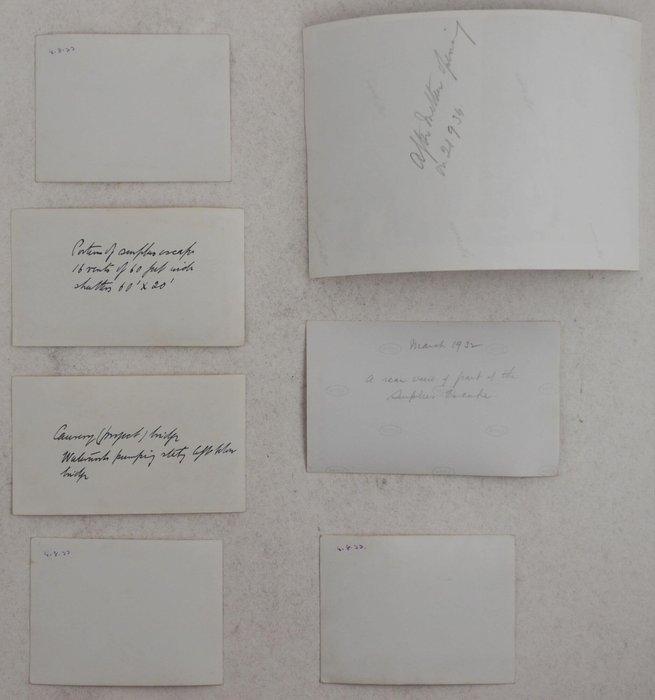 4.8.33
Portion of surplus escape
16 vents of 60 feet wide
shutters 60' x 20'
Cauvery (project) bridge
Waterworks pumping
bridge
4.8.33
After Mettur Opening
on 21 9 36
March 1932
A rear view of part of the
Surplus Escape
4.8.33.